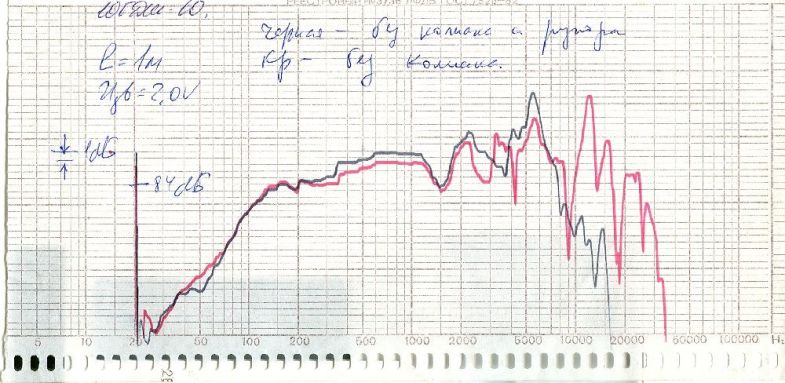 Черная — без колпака и рупора
Кр — без колпака.
l = 1м
Uзв = 2,0v
1дБ
84дБ
5 10 20 50 100 200 500 1000 2000 5000 10000 20000 50000 100000 Hz